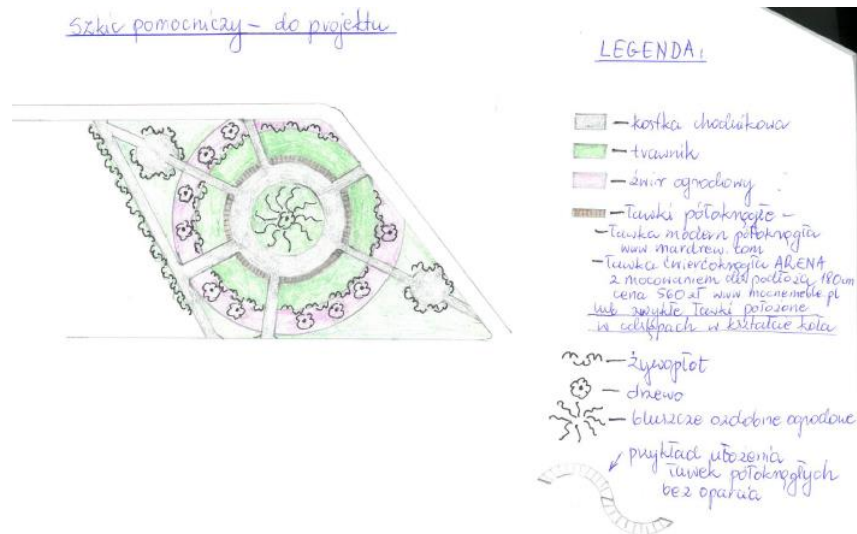 Szkic pomocniczy – do projektu
LEGENDA:
– kostka chodnikowa
– trawnik
– żwir ogrodowy
– ławki półokrągłe –
– ławka modern półokrągła
www.mardrew.com
– ławka ćwierćokrągła ARENA
z mocowaniem do podłoża 180cm
cena 560 zł www.mocnemeble.pl
lub zwykłe ławki położone
w odstępach w kształcie koła
– żywopłot
– drzewo
– bluszcze ozdobne ogrodowe
przykład ułożenia
ławek półokrągłych
bez oparcia